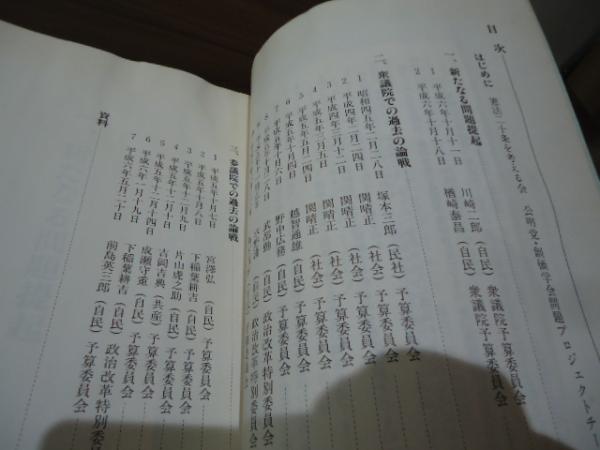 目次
はじめに 憲法二十条を考える会 公明党・創価学会問題プロジェクトチー
一、新たなる問題提起
1 平成六年十月十一日 川崎二郎（自民）衆議院予算委員会
2 平成六年十月十八日 楢崎泰昌（自民）衆議院予算委員会
二、衆議院での過去の論戦
1 昭和四五年二月二八日 塚本三郎（民社）予算委員会
2 平成四年二月二四日 関晴正（社会）予算委員会
3 平成四年三月十二日 関晴正（社会）予算委員会
4 平成五年三月五日 関晴正（社会）予算委員会
5 平成五年十月四日 越智通雄（自民）予算委員会
6 平成五年十月六日 野中広務（自民）予算委員会
政治改革特別委員会
政治改革特別委員会
三、参議院での過去の論戦
1 平成五年十月七日 宮澤弘（自民）予算委員会
2 平成五年十月八日 下稲葉耕吉（自民）予算委員会
3 片山虎之助（自民）予算委員会
4 吉岡吉典（共産）予算委員会
5 成瀬守重（自民）予算委員会
6 下稲葉耕吉（自民）予算委員会
7 平成六年五月二十日 前島英三郎（自民）政治改革特別委員
資料